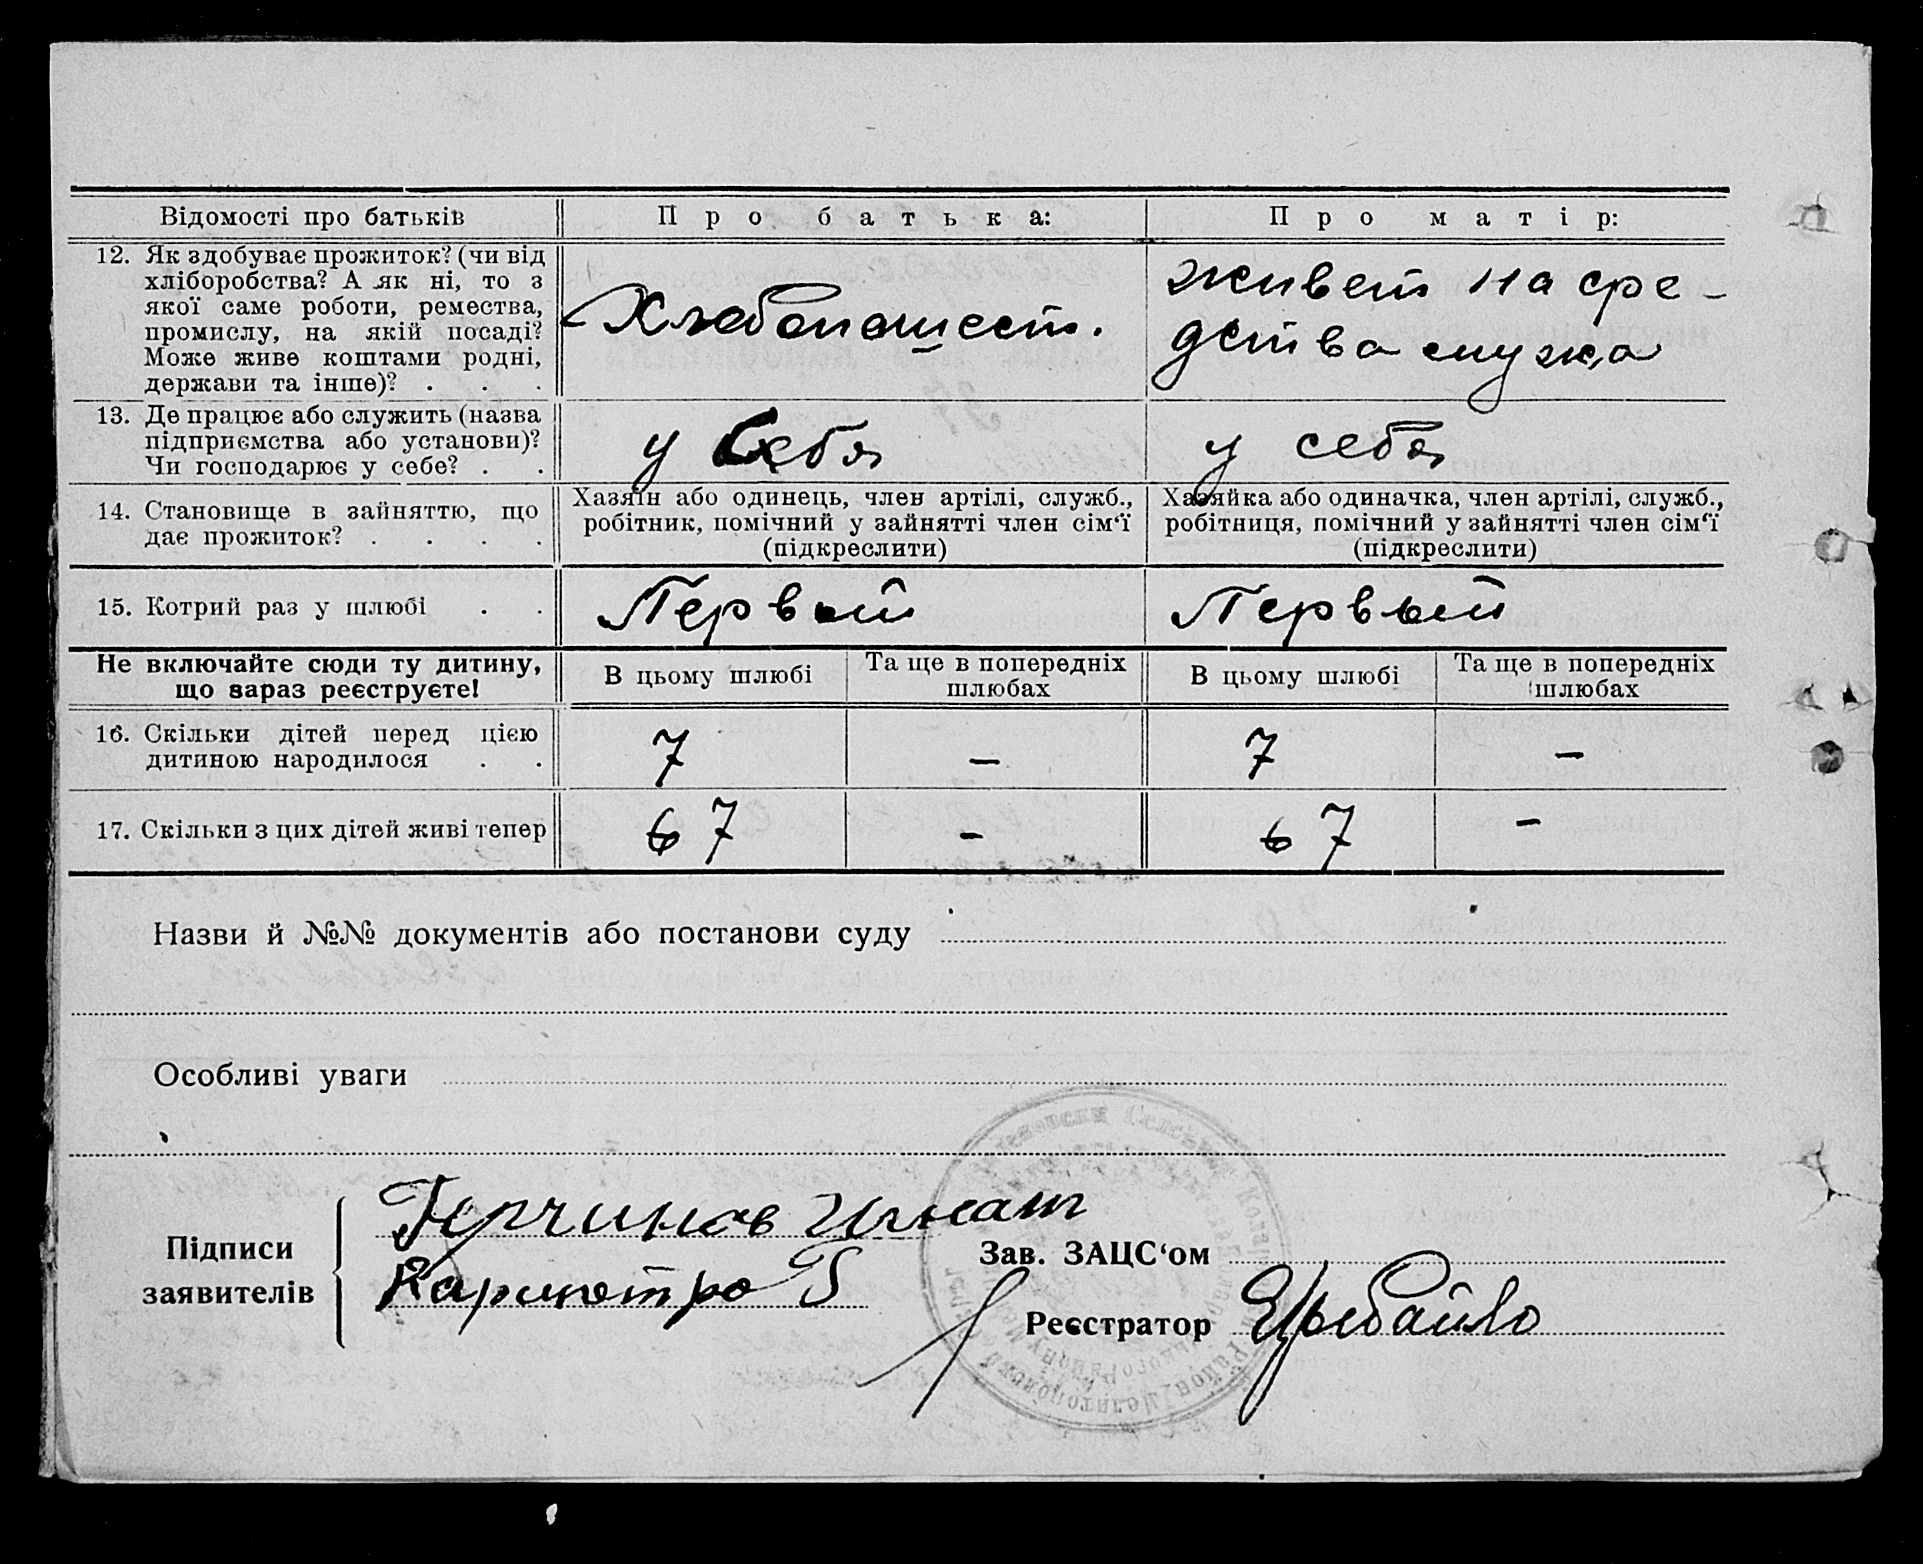 Відомості про батьків
Про батька:
Про матір:
12. Як здобуває прожиток? (чи від
хліборобства? А як ні, то з
якої саме роботи, ремества,
промислу, на якій посаді?
Може живе коштами родні,
держави та інше)? . . .
Хлебопашест.
живет на сре-
дства мужа
13. Де працює або служить (назва
підприємства або установи)?
Чи господарює у себе? . .
у себя
у себя
14. Становище в зайняттю, що
дає прожиток? . . . .
Хазяїн або одинець, член артілі, служб.,
робітник, помічний у зайнятті член сім‘ї
(підкреслити)
Хазяйка або одиначка, член артілі, служб.,
робітниця, помічний у зайнятті член сім‘ї
(підкреслити)
15. Котрий раз у шлюбі . .
Первый
Первый
Не включайте сюди ту дитину,
що зараз реєструєте!
В цьому шлюбі
Та ще в попередніх
шлюбах
В цьому шлюбі
Та ще в попередніх
шлюбах
16. Скільки дітей перед цією
дитиною народилося . .
7
—
7
—
17. Скільки з цих дітей живі тепер
6 7
—
6 7
—
Назви й №№ документів або постанови суду
Особливі уваги
Підписи
заявителів
Игнат
Зав. ЗАЦС‘ом
Реєстратор